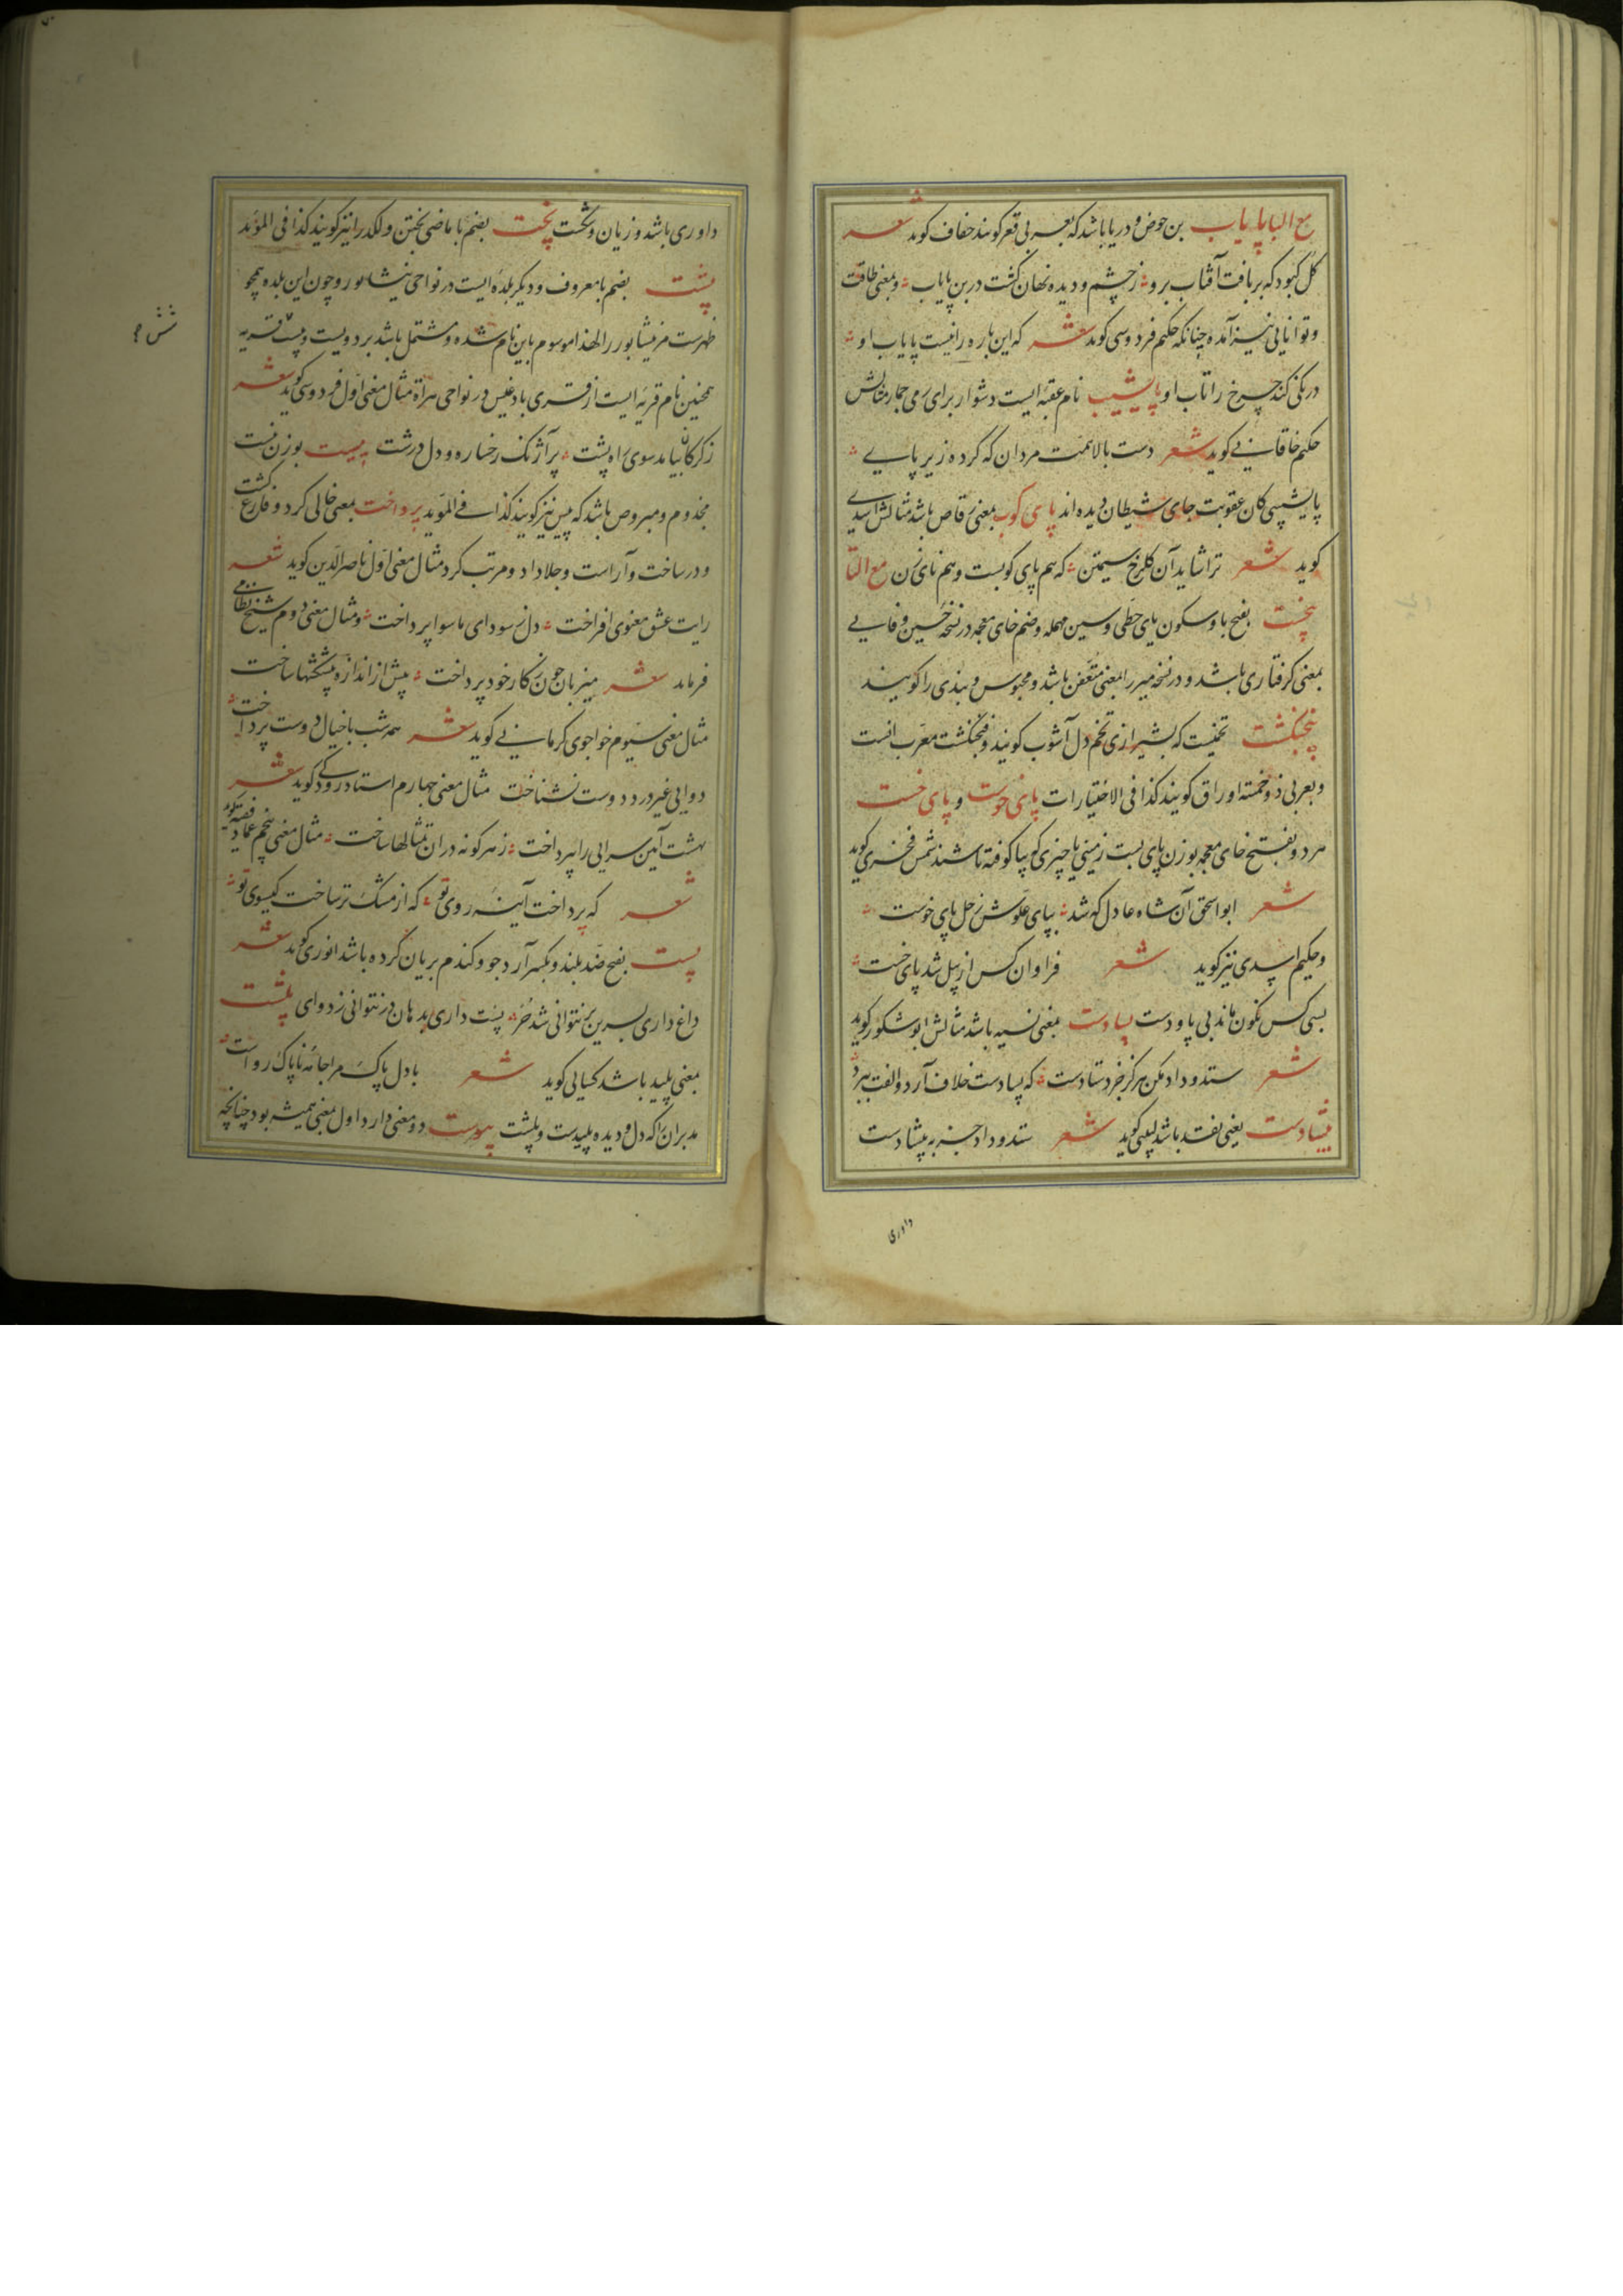 مع البا پایاب بن حوض و دریا باشد که بعربی قعر گویند خفاف گوید شعر
گل کبود که بر تافت آفتاب برو ز چشم و دیده نهان گشت در بن پایاب و بمعنی طاقت
و توانایی نیز آمده چنانکه حکیم فردوسی گوید شعر که این باره را نیست پایاب او
درنگی کند چرخ را تاب او پاشیب نام عقبه ایست دشوار برای رمی جمار مثالش
حکیم خاقانی گوید شعر دست بالا همت مردان که کرده زیر پایی
پاشیبی کان عقوبت جای شیطان دیده اند پای کوب بمعنی رقاص باشد مثالش اسدی
گوید شعر ترا شاید آن گلرخ سیمتن که هم پای کوبست و هم نای زن مع التا
پیخست بفتح با و سکون یای حطی و سین مهمله و ضم خای معجمه در نسخه حسین وفایی
بمعنی گرفتاری باشد و در نسخه میرزا بمعنی متعفن باشد و محبوس و بندی را گویند
پنجنگشت تخمیست که بشیرازی تخم دل آشوب گویند و فنجنگشت معرب انست
و بعربی ذو خمسة اوراق گویند کذا فی الاختیارات پای خوست و پای خست
هر دو بفتح خای معجمه بوزن پای بست زمینی یا چیزی که بپا کوفته باشند شمس فخری گوید
شعر ابو اسحق آن شاه عادل که شد بپای علوش زحل پای خوست
و حکیم اسدی نیز گوید شعر فراوان کس از پیل شد پای خست
بسی کس نگون ماند بی پا و دست پسادست بمعنی نسیه باشد مثالش ابو شکور گوید
شعر ستد و داد مکن هرگز جز دستادست که پسادست خلاف آرد و الفت ببرد
پیشادست یعنی نقد باشد لبیبی گوید شعر ستد و داد جز به پیشادست
داوری
داوری باشد و زیان و شکست پخت بضم با ماضی پختن و لکد را نیز گویند کذا فی المؤید
پشت بضم با معروف و دیگر بلده ایست در نواحی نیشابور و چون این بلده همچو
ظهرست مر نیشابور را لهذا موسوم باین نام شده و مشتمل باشد بر دویست و بیست قریه
همچنین نام قریه ایست از قری بادغیس در نواحی هراة مثال معنی اول فردوسی گوید شعر
ز کرکان بیامد سوی راه پشت پر آژنک رخساره و دل درشت پیست بوزن نیست
مجذوم و مبروص باشد که پیس نیز گویند کذا فی المؤید پرداخت بمعنی خالی کرد و فارغ گشت
و در ساخت و آراست و جلا داد و مرتب کرد مثال معنی اول ناصر الدین گوید شعر
رایت عشق معنوی افراخت دل ز سودای ما سوا پرداخت و مثال معنی دوم شیخ نظامی
فرماید شعر میزبان چون ز کار خود پرداخت پیش از اندازه پیشکشها ساخت
مثال معنی سیوم خواجوی کرمانی گوید شعر همه شب با خیال دوست پرداخت
دوایی غیر درد دوست نشناخت مثال معنی چهارم استاد رودکی گوید شعر
بهشت آیین سرایی را بپرداخت ز هر گونه دران تمثالها ساخت مثال معنی پنجم عماد فقیه گوید
شعر که پرداخت آینه روی تو که از مشک تر ساخت کیسوی تو
پست بفتح ضد بلند و بکسر آرد جو و گندم بریان کرده باشد انوری گوید شعر
داغ داری بسرین بر نتوانی شد حر پست داری بدهان در نتوانی زد وای پلشت
بمعنی پلید باشد کسایی گوید شعر با دل پاک مرا جامه ناپاک رواست
بد مران را که دل و دیده پلیدست و پلشت پیوست دو معنی دارد اول بمعنی همیشه بود چنانچه